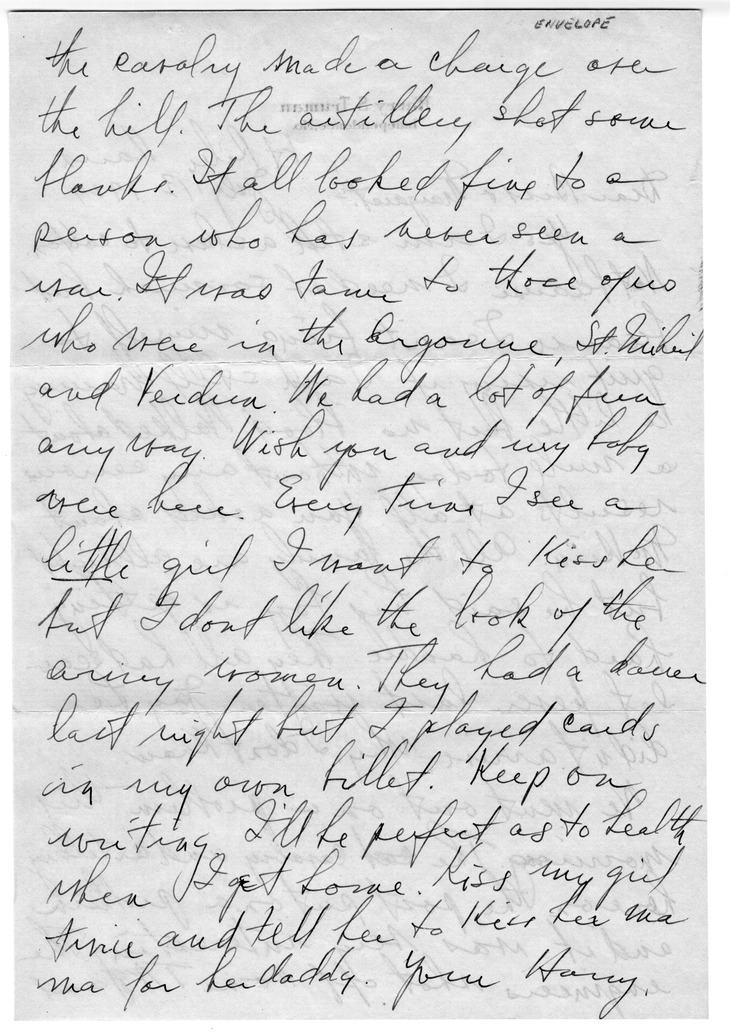 ENVELOPE
the cavalry made a charge over
the hill. The artillery shot some
blanks. It all looked fine to a
person who has never seen a
war. It was tame to those of us
who were in the Argonne, St. Mihiel
and Verdun. We had a lot of fun
any way. Wish you and my baby
were here. Every time I see a
little girl I want to kiss her
but I dont like the look of the
army women. They had a dance
last night but I played cards
in my own billet. Keep on
writing I'll be perfect as to health
when I get home. Kiss my girl
and tell her to kiss her ma
ma for her daddy. Your Harry.